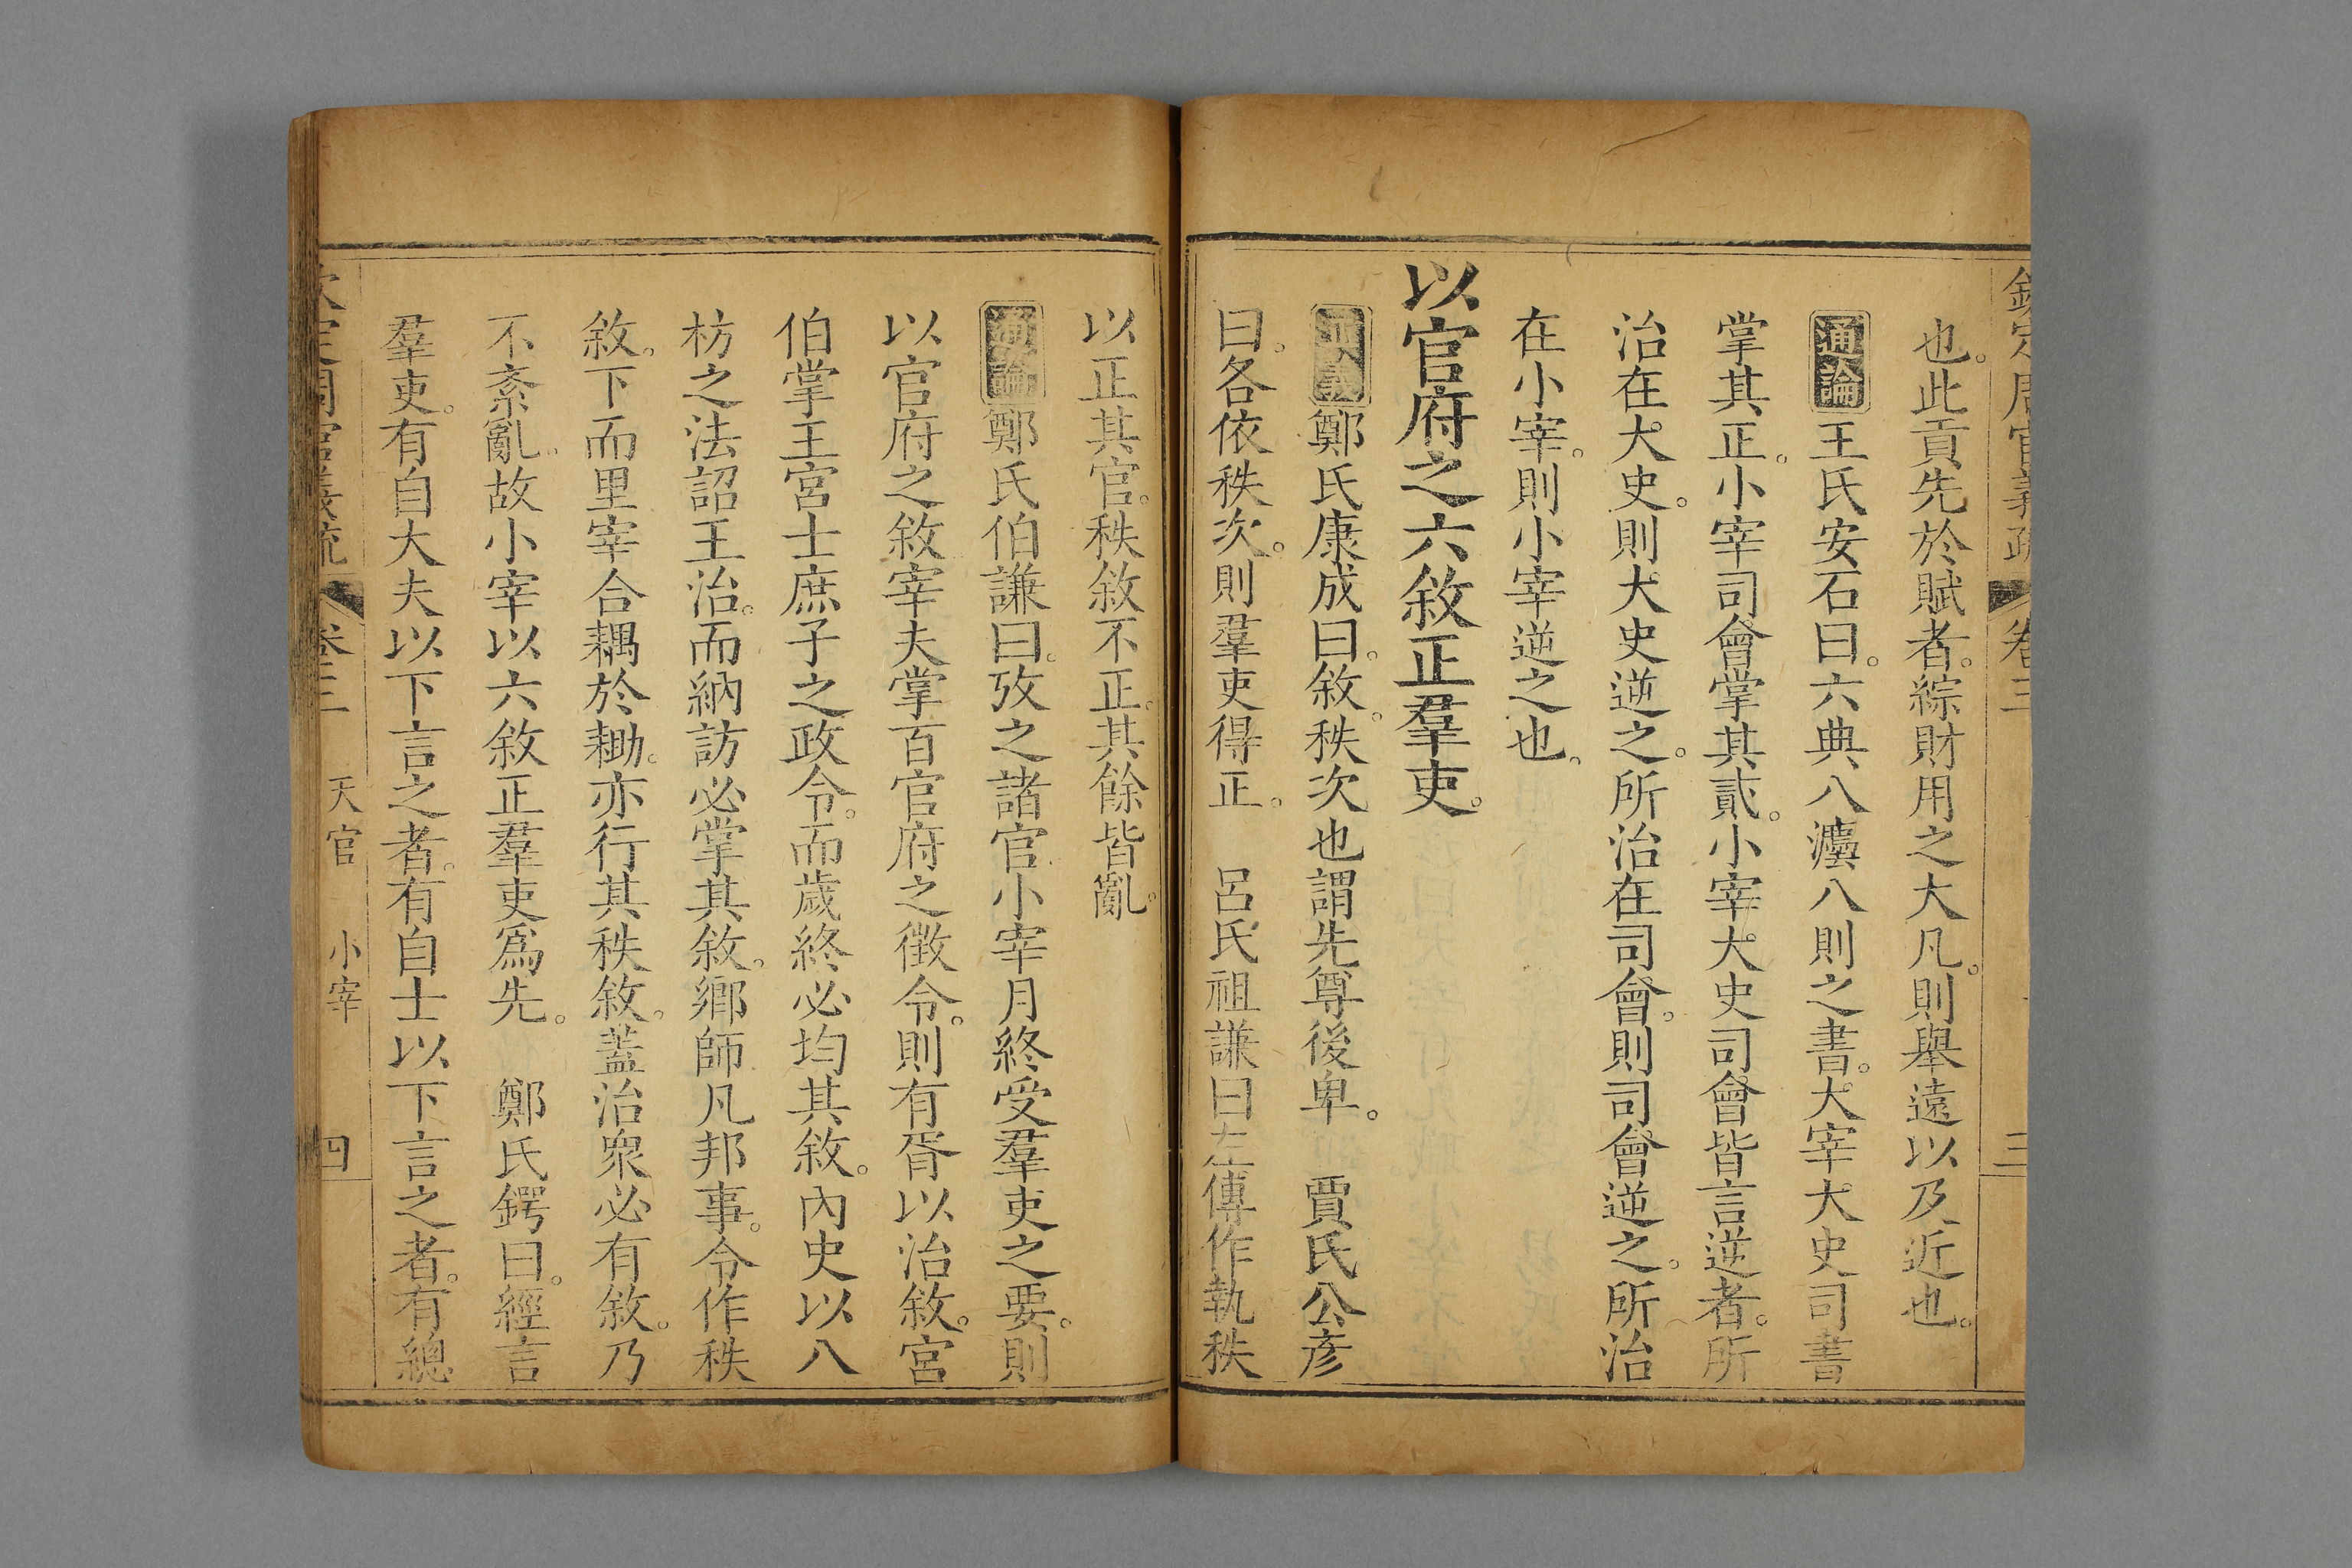 欽定周官義疏 卷三 三
也。此貢先於賦者。綜財用之大凡。則舉遠以及近也。
通論 王氏安石曰。六典八灋八則之書。大宰大史司書
掌其正。小宰司會掌其貳。小宰大史司會皆言逆者。所
治在大史。則大史逆之。所治在司會。則司會逆之。所治
在小宰。則小宰逆之也。
以官府之六敘正羣吏。
正義 鄭氏康成曰。敘。秩次也謂先尊後卑。 賈氏公彥
曰。各依秩次。則羣吏得正。 呂氏祖謙曰左傳作執秩
以正其官。秩敘不正。其餘皆亂。
通論 鄭氏伯謙曰。攷之諸官小宰月終受羣吏之要。則
以官府之敘宰夫掌百官府之徵令。則有胥以治敘。宮
伯掌王宮士庶子之政令。而歲終必均其敘。內史以八
枋之法詔王治。而納訪必掌其敘。鄉師凡邦事。令作秩
敘。下而里宰合耦於耡。亦行其秩敘。蓋治衆必有敘。乃
不紊亂。故小宰以六敘正羣吏爲先。 鄭氏鍔曰。經言
羣吏。有自大夫以下言之者。有自士以下言之者。有總
欽定周官義疏 卷三 天官 小宰 四